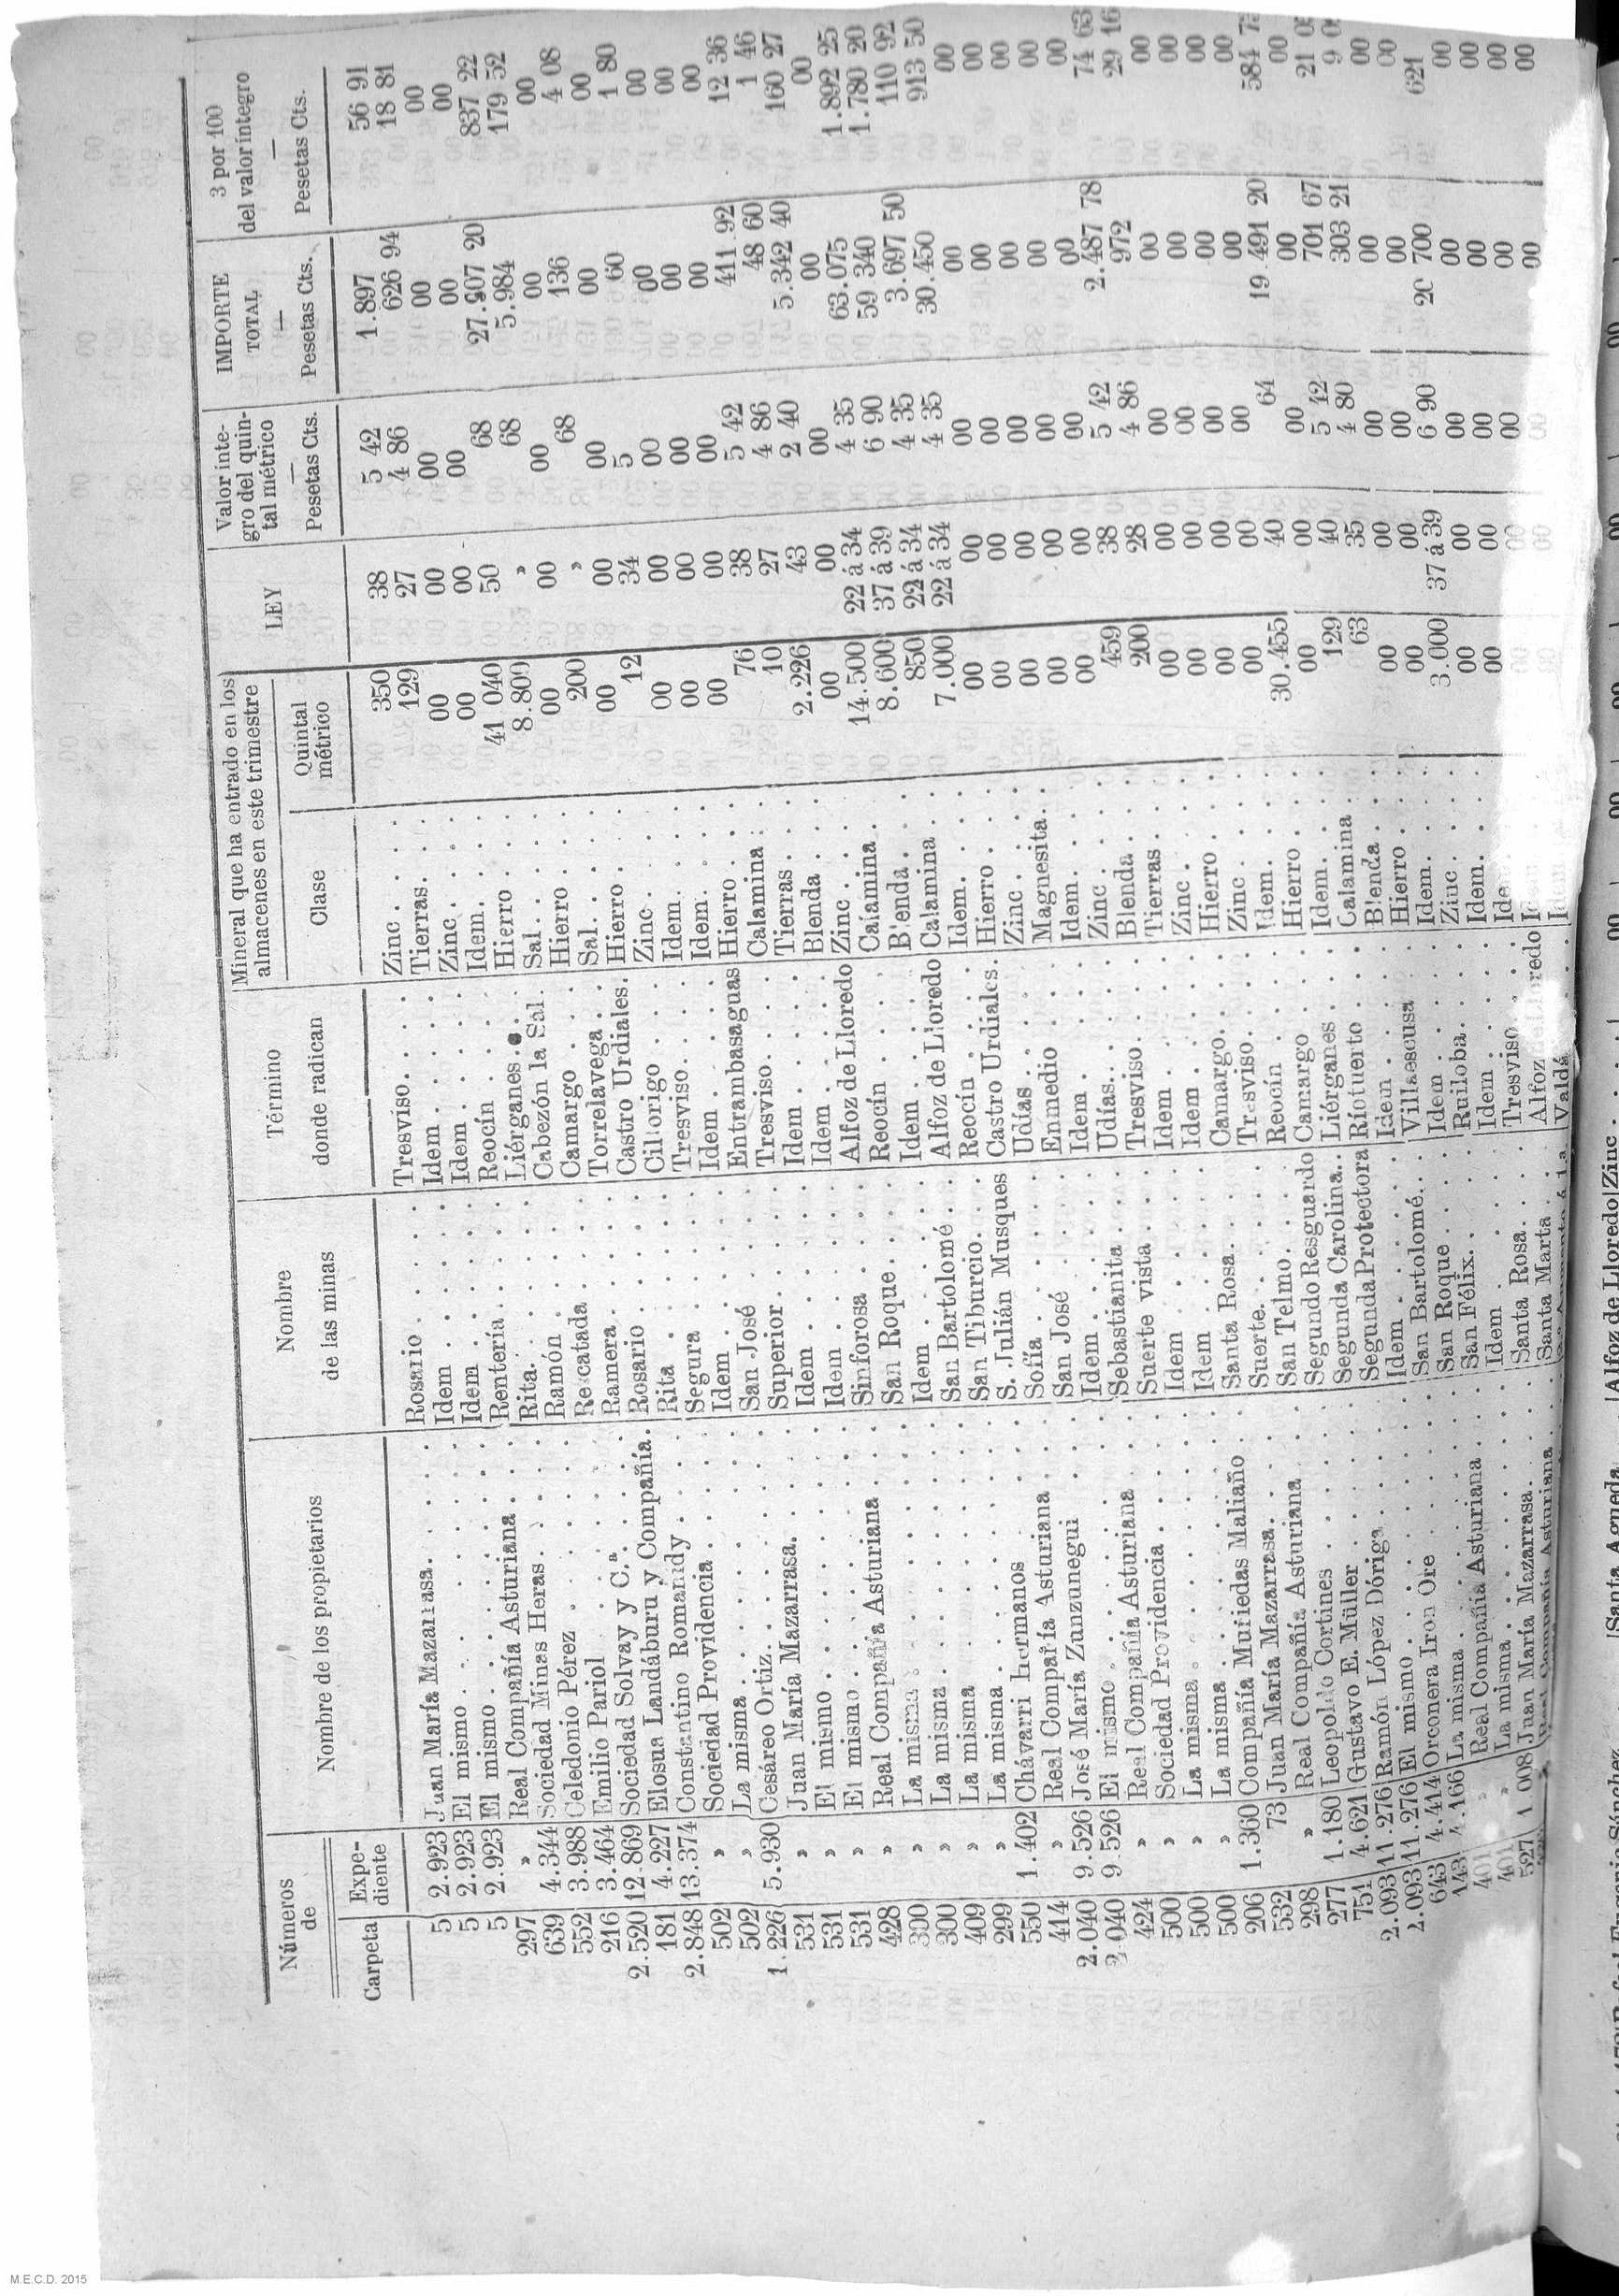 Números de
Nombre de los propietarios
Nombre de las minas
Término donde radican
Mineral que ha entrado en los almacenes en este trimestre
LEY
Valor inte-gro del quin-tal métrico
IMPORTE TOTAL
3 por 100 del valor íntegro
Carpeta Expe-diente Clase Quintal métrico Pesetas Cts. Pesetas Cts. Pesetas Cts.
5 2.923 Juan María Mazarrasa. Rosario Tresviso Zinc 350 38 5 42 1.897 56 91
5 2.923 El mismo Idem Idem Tierras. 129 27 4 86 626 94 18 81
5 2.923 El mismo Idem Idem Zinc 00 00 00 00 00
297 » Real Compañía Asturiana Rentería Reocín Idem. 00 00 00 00 00
639 4.344 Sociedad Minas Heras Rita. Liérganes Hierro 41 040 50 68 27.907 20 837 22
552 3.988 Celedonio Pérez Ramón Cabezón la Sal. Sal. 8.809 » 68 5.984 179 52
216 3.464 Emilio Pariol Rescatada Camargo Hierro 00 00 00 00 00
2.520 12.869 Sociedad Solvay y C.ª Ramera Torrelavega Sal. 200 » 68 136 4 08
181 4.227 Elosua Landáburu y Compañía. Rosario Castro Urdiales. Hierro 00 00 00 00 00
2.848 13.374 Constantino Romanidy Rita Cillorigo Zinc. 12 34 5 60 1 80
502 » Sociedad Providencia Segura Tresviso. Idem. 00 00 00 00 00
502 » La misma Idem Idem Idem. 00 00 00 00 00
1.226 5.930 Cesáreo Ortiz. San José Entrambasaguas Hierro 00 00 00 00 00
531 » Juan María Mazarrasa. Superior Tresviso. Calamina 76 38 5 42 411 92 12 36
531 » El mismo Idem Idem Tierras 10 27 4 86 48 60 1 46
531 » El mismo Idem Idem Blenda 2.226 43 2 40 5.342 40 160 27
428 » Real Compañía Asturiana Sinforosa Alfoz de Lloredo Zinc 00 00 00 00 00
300 » La misma San Roque Reocín Calamina. 14.500 22 á 34 4 35 63.075 1.892 25
300 » La misma Idem Idem Blenda 8.600 37 á 39 6 90 59 340 1.780 20
409 » La misma San Bartolomé Alfoz de Lloredo Calamina 850 22 á 34 4 35 3.697 50 110 92
299 » La misma San Tiburcio. Reocín Idem. 7.000 22 á 34 4 35 30.450 913 50
550 1.402 Chávarri hermanos S. Julián Musques Castro Urdiales. Hierro 00 00 00 00 00
414 » Real Compañía Asturiana Sofía Udías Zinc 00 00 00 00 00
2.040 9.526 José María Zunzunegui San José Enmedio Magnesita. 00 00 00 00 00
2.040 9.526 El mismo Idem Idem Idem. 00 00 00 00 00
424 » Real Compañía Asturiana Sebastianita Udías. Zinc 00 00 00 00 00
500 » Sociedad Providencia Suerte vista Tresviso. Blenda 459 38 5 42 2.487 78 74 63
500 » La misma Idem Idem Tierras 200 28 4 86 972 29 16
500 » La misma Idem Idem Zinc 00 00 00 00 00
206 1.360 Compañía Muriedas Maliaño Santa Rosa. Camargo. Hierro 00 00 00 00 00
532 73 Juan María Mazarrasa. Suerte. Tresviso. Zinc 00 00 00 00 00
298 » Real Compañía Asturiana San Telmo. Reocín Idem. 00 00 00 00 00
277 1.180 Leopoldo Cortines Segundo Resguardo Camargo Hierro 30.455 40 64 19.491 20 584
751 4.621 Gustavo E. Müller Segunda Carolina. Liérganes Idem. 00 00 00 00 00
2.093 11.276 Ramón López Dóriga Segunda Protectora Ríotuerto Calamina 129 40 5 42 701 67 21
2.093 11.276 El mismo Idem Idem Blenda 63 35 4 80 303 21 9
643 4.414 Orconera Iron Ore San Bartolomé. Villaescusa Hierro 00 00 00 00 00
143 4.166 La misma San Roque Idem Idem. 00 00 00 00 00
401 » Real Compañía Asturiana San Félix. Ruiloba. Zinc 3.000 37 á 39 6 90 20 700 621
401 » La misma Idem Idem Idem. 00 00 00 00 00
527 1.008 Juan María Mazarrasa. Santa Rosa. Tresviso 00 00 00 00 00
Real Compañía Asturiana Santa Marta Alfoz de Lloredo 00 00 00 00 00
Santa Agueda Alfoz de Lloredo Zinc
M.E.C.D. 2015